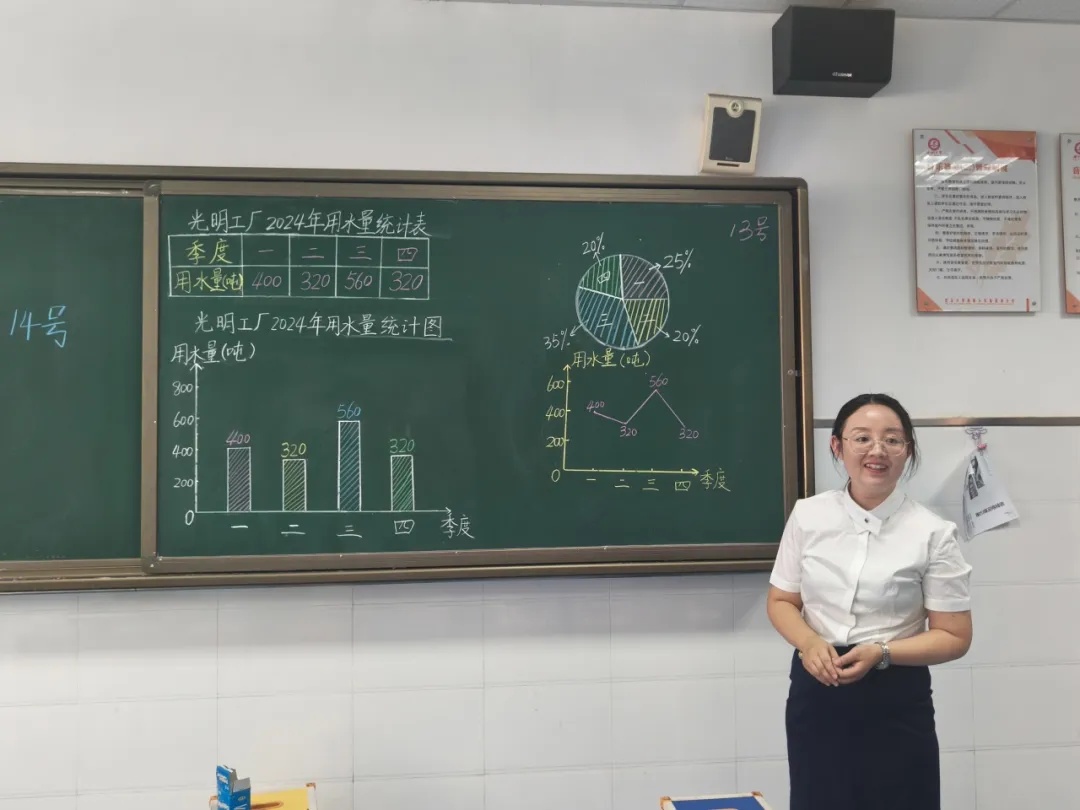 14号
光明工厂2024年用水量统计表
季度 一 二 三 四
用水量(吨) 400 320 560 320
光明工厂2024年用水量统计图
用水量(吨)
800
600
400
200
0
400
320
560
320
一 二 三 四 季度
13号
20%
25%
四 一
三 二
35%
20%
用水量(吨)
600
400
200
0
400
320
560
320
一 二 三 四 季度